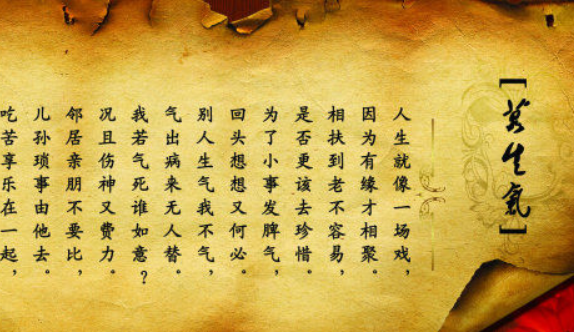 [莫生氣]
人生就像一场戏，
因为有缘才相聚。
相扶到老不容易，
是否更该去珍惜。
为了小事发脾气，
回头想想又何必。
别人生气我不气，
气出病来无人替。
我若气死谁如意？
况且伤神又费力。
邻居亲朋不要比，
儿孙琐事由他去。
吃苦享乐在一起，